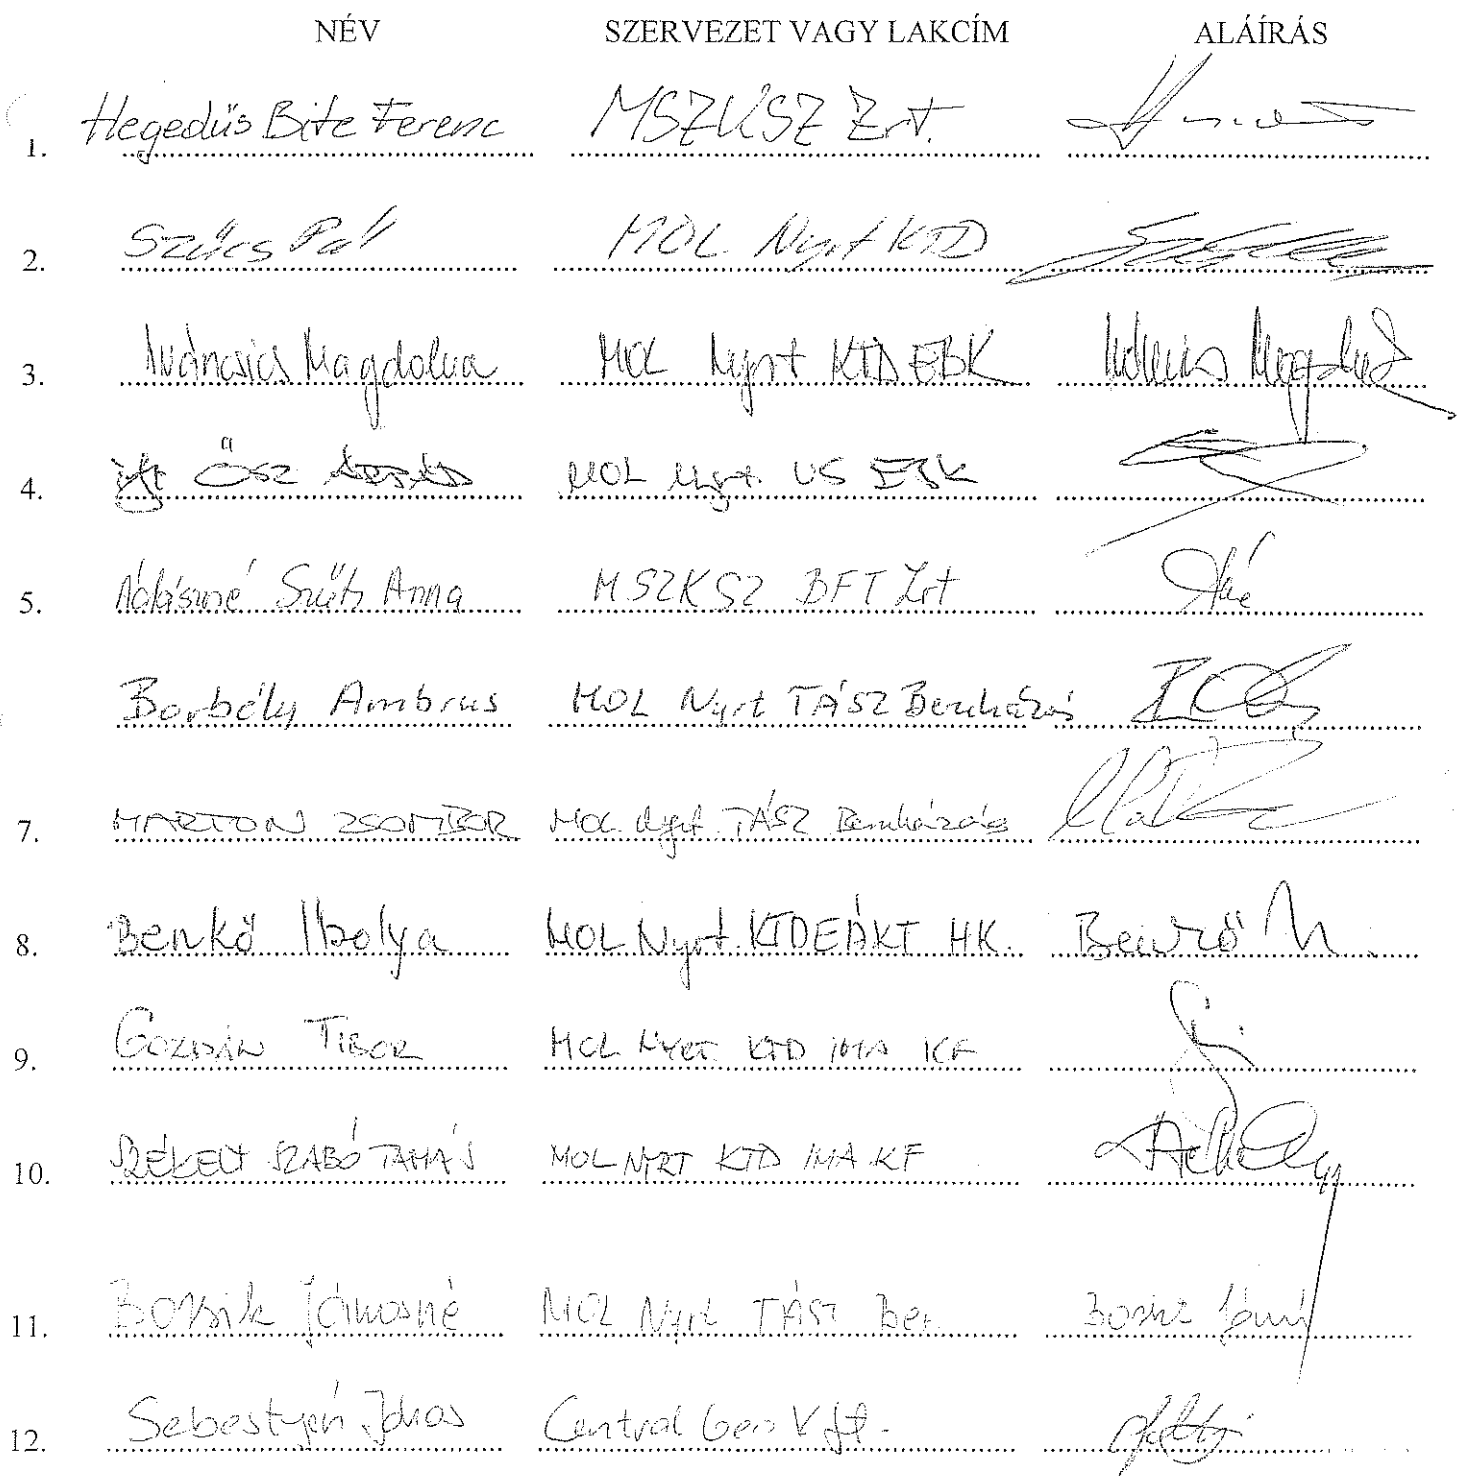 NÉV SZERVEZET VAGY LAKCÍM ALÁÍRÁS
1. Hegedűs Bite Ferenc MSZKSZ Zrt.
2. Szűcs Pál MOL Nyrt KTD
3. Iváncsics Magdolna MOL Nyrt KTD EBK
4. Ősz Árpád MOL Nyrt. US EBK
5. Szűts Anna MSZKSZ BFT Zrt
Borbély Ambrus MOL Nyrt TÁSZ Beruházás
7. MARTON ZSOMBOR MOL Nyrt TÁSZ Beruházás
8. Benkő Ibolya MOL Nyrt. KTD EÁKT HK. Benkő
9. TIBOR MOL NYRT KTD IMA KF
10. SZÉKELY SZABÓ TAMÁS MOL NYRT KTD IMA KF
11. Jánosné MOL Nyrt TÁSZ Ber.
12. Sebestyén Central Geo Kft.